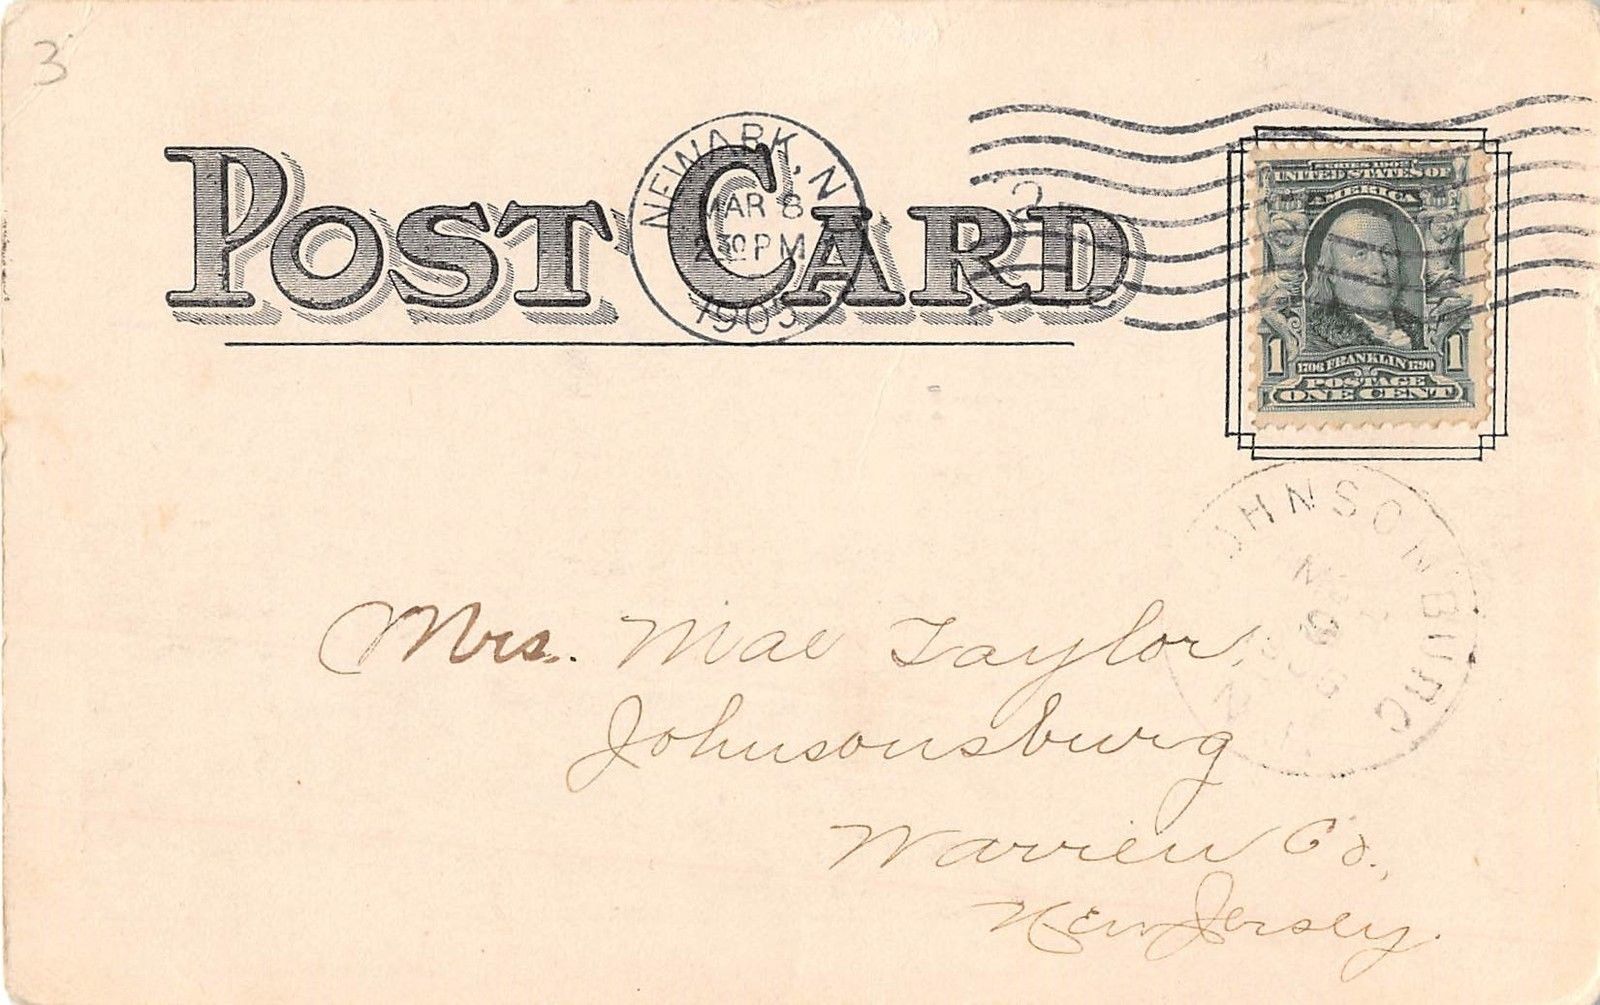 3
POST CARD
NEWARK, N
MAR 8
2 30 PM
1905
2
SERIES 1902
UNITED STATES OF
AMERICA
1 1706 FRANKLIN 1790 1
POSTAGE
ONE CENT
JOHNSONBURG
Mrs. Mae Taylor,
Johnsonsburg
Warren Co.,
New Jersey.